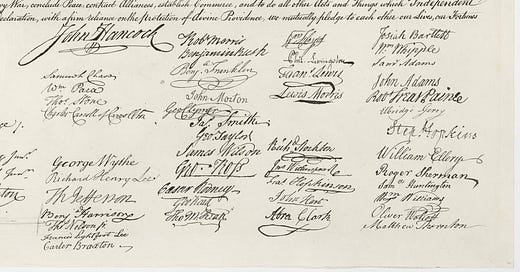 War, conclude Peace, contract Alliances, establish Commerce, and to do all other Acts and Things which Independent
Declaration, with a firm reliance on the Protection of divine Providence, we mutually pledge to each other our Lives, our Fortunes
John Hancock
Samuel Chase
Wm Paca
Thos Stone
Charles Carroll of Carrollton
George Wythe
Richard Henry Lee
Th Jefferson
Benj Harrison
Thos Nelson jr
Francis Lightfoot Lee
Carter Braxton
Robt Morris
Benjamin Rush
Benj Franklin
John Morton
Geo Clymer
Jas Smith
Geo Taylor
James Wilson
Geo Ross
Caesar Rodney
Geo Read
Tho M:Kean
Phil. Livingston
Frans Lewis
Lewis Morris
Richd Stockton
Jno Witherspoon
Fras Hopkinson
John Hart
Abra Clark
Josiah Bartlett
Wm Whipple
Saml Adams
John Adams
Robt Treat Paine
Elbridge Gerry
Step Hopkins
William Ellery
Roger Sherman
Saml Huntington
Wm Williams
Oliver Wolcott
Matthew Thornton